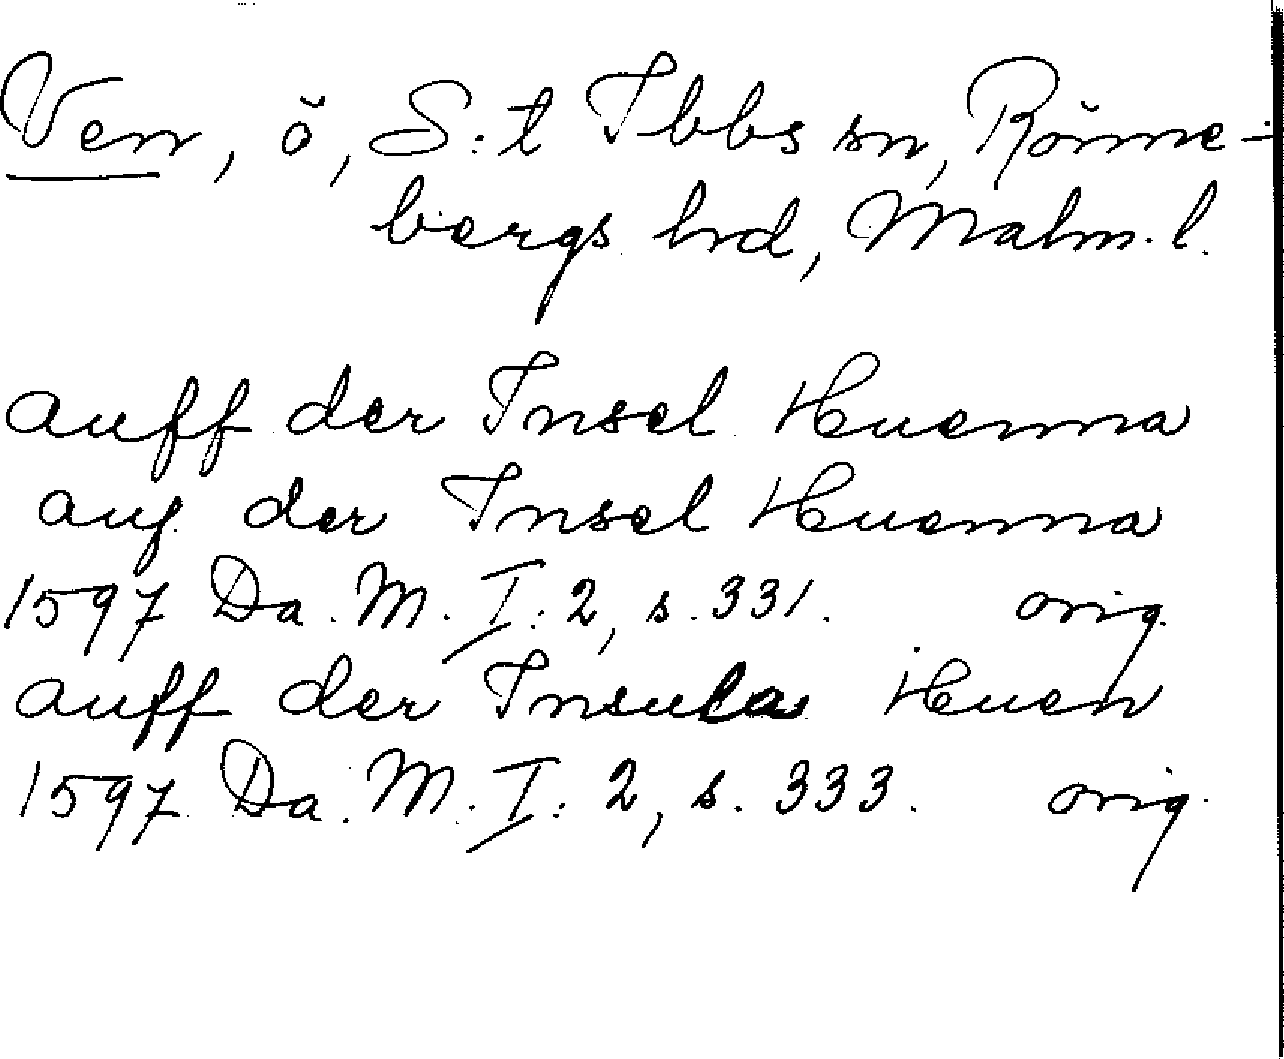 Ven, ö, S:t Ibbs sn, Rönne-
bergs hrd, Malm. l.
auff der Insel Huenna
auf der Insel Huenna
1597 Da. M. I: 2, s. 331. orig.
auff der Insula Huen
1597 Da. M. I: 2, s. 333. orig.